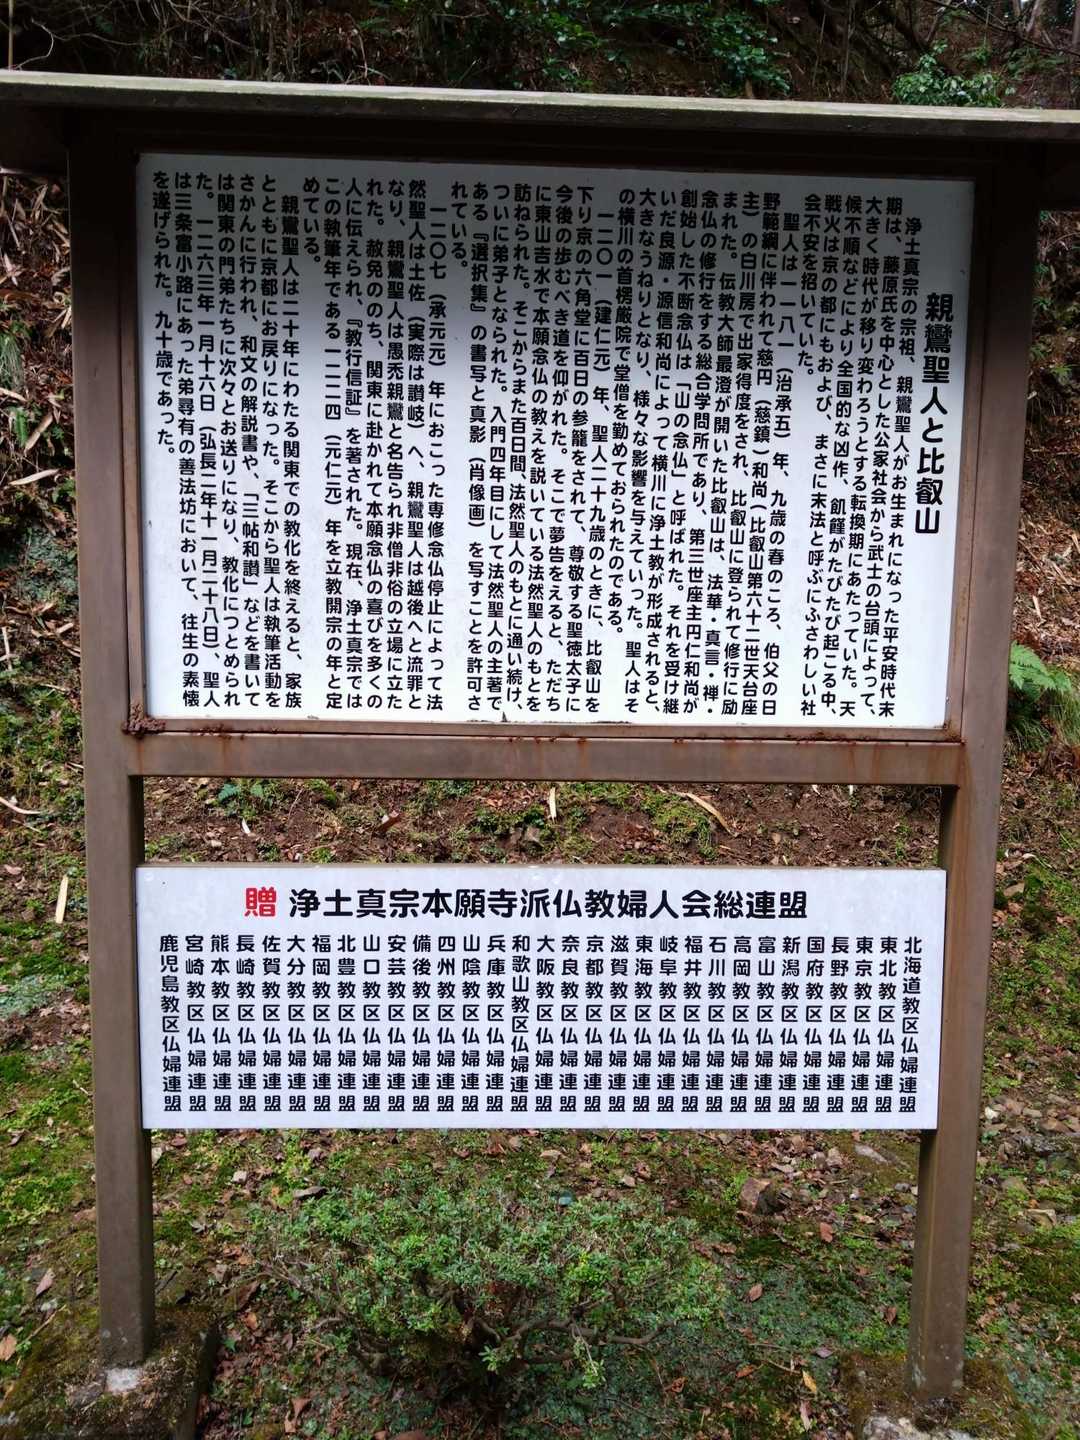 親鸞聖人と比叡山
浄土真宗の宗祖、親鸞聖人がお生まれになった平安時代末
期は、藤原氏を中心とした公家社会から武士の台頭によって、
大きく時代が移り変わろうとする転換期にあたっていた。天
候不順などにより全国的な凶作、飢饉がたびたび起こる中、
戦火は京の都にもおよび、まさに末法と呼ぶにふさわしい社
会不安を招いていた。
聖人は一一八一（治承五）年、九歳の春のころ、伯父の日
野範綱に伴われて慈円（慈鎮）和尚（比叡山第六十二世天台座
主）の白川房で出家得度をされ、比叡山に登られて修行に励
まれた。伝教大師最澄が開いた比叡山は、法華・真言・禅・
念仏の修行をする総合学問所であり、第三世座主円仁和尚が
創始した不断念仏は「山の念仏」と呼ばれた。それを受け継
いだ良源・源信和尚によって横川に浄土教が形成されると、
大きなうねりとなり、様々な影響を与えていった。聖人はそ
の横川の首楞厳院で堂僧を勤めておられたのである。
一二〇一（建仁元）年、聖人二十九歳のときに、比叡山を
下り京の六角堂に百日の参籠をされて、尊敬する聖徳太子に
今後の歩むべき道を仰がれた。そこで夢告をえると、ただち
に東山吉水で本願念仏の教えを説いている法然聖人のもとを
訪ねられた。そこからまた百日間、法然聖人のもとに通い続け、
ついに弟子となられた。入門四年目にして法然聖人の主著で
ある『選択集』の書写と真影（肖像画）を写すことを許可さ
れている。
一二〇七（承元元）年におこった専修念仏停止によって法
然聖人は土佐（実際は讃岐）へ、親鸞聖人は越後へと流罪と
なり、親鸞聖人は愚禿親鸞と名告られ非僧非俗の立場に立た
れた。赦免ののち、関東に赴かれて本願念仏の喜びを多くの
人に伝えられ、『教行信証』を著された。現在、浄土真宗では
この執筆年である一二二四（元仁元）年を立教開宗の年と定
めている。
親鸞聖人は二十年にわたる関東での教化を終えると、家族
とともに京都にお戻りになった。そこから聖人は執筆活動を
さかんに行われ、和文の解説書や、「三帖和讃」などを書いて
は関東の門弟たちに次々とお送りになり、教化につとめられ
た。一二六三年一月十六日（弘長二年十一月二十八日）、聖人
は三条富小路にあった弟尋有の善法坊において、往生の素懐
を遂げられた。九十歳であった。
贈 浄土真宗本願寺派仏教婦人会総連盟
北海道教区仏婦連盟
東北教区仏婦連盟
東京教区仏婦連盟
長野教区仏婦連盟
国府教区仏婦連盟
新潟教区仏婦連盟
富山教区仏婦連盟
高岡教区仏婦連盟
石川教区仏婦連盟
福井教区仏婦連盟
岐阜教区仏婦連盟
東海教区仏婦連盟
滋賀教区仏婦連盟
京都教区仏婦連盟
奈良教区仏婦連盟
大阪教区仏婦連盟
和歌山教区仏婦連盟
兵庫教区仏婦連盟
山陰教区仏婦連盟
四州教区仏婦連盟
備後教区仏婦連盟
安芸教区仏婦連盟
山口教区仏婦連盟
北豊教区仏婦連盟
福岡教区仏婦連盟
大分教区仏婦連盟
佐賀教区仏婦連盟
長崎教区仏婦連盟
熊本教区仏婦連盟
宮崎教区仏婦連盟
鹿児島教区仏婦連盟